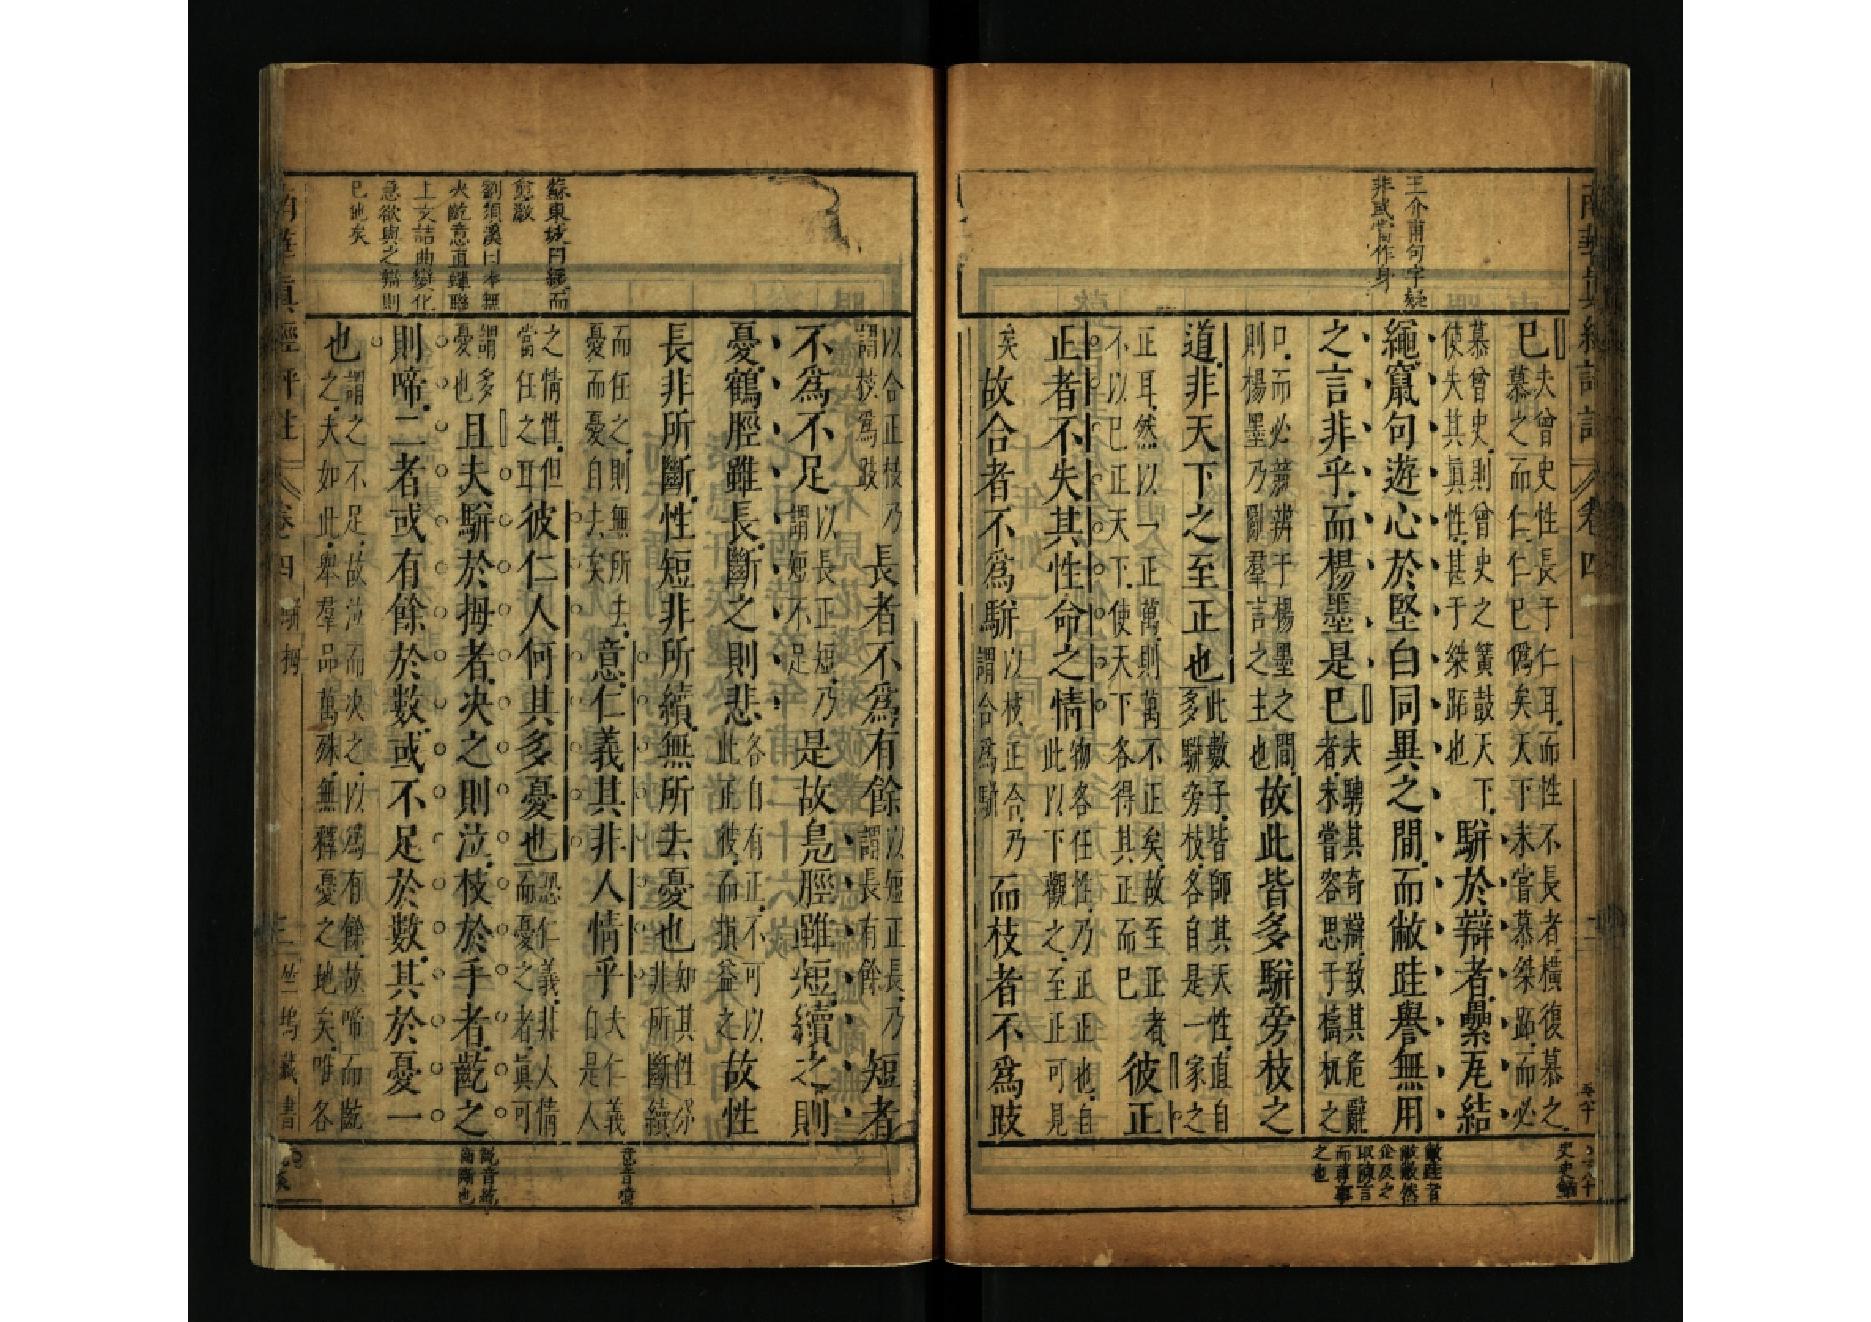 南華真經評註 卷四
王介甫句字疑
非或當作身
巳夫曾史性長于仁耳而性不長者橫復慕之
慕之而仁仁巳僞矣天下未嘗慕桀跖而必
慕曾史則曾史之簧鼓天下
使失其真性甚于桀跖也
駢於辯者纍瓦結
繩竄句遊心於堅白同異之間而敝跬譽無用
之言非乎而楊墨是巳
夫騁其奇辯致其危辭
者未嘗容思于檮杌之
口而必競辨于楊墨之間
則楊墨乃亂羣言之主也
故此皆多駢旁枝之
道非天下之至正也
此數子皆師其天性直自
多駢旁枝各自是一家之
正耳然以一正萬則萬不正矣故至正者
不以巳正天下使天下各得其正而巳
彼正
正者不失其性命之情
物各任性乃正正也自
此以下觀之至正可見
矣故合者不爲駢
以枝正合乃
謂合爲駢
而枝者不爲跂
史史鰌
敝跬者
敝敝然
企及之
取陳言
而尊事
之也
蘇東坡曰繩而
劉須溪曰本無
決齕意直蟬聯
上文詰曲變化
急欲與之辯則
巳地矣
以合正枝乃
謂枝爲跂
長者不爲有餘
以短正長乃
謂長有餘
短者
不爲不足
以長正短乃
謂短不足
是故鳧脛雖短續之則
憂鶴脛雖長斷之則悲
各自有正不可以
此正彼而損益之
故性
長非所斷性短非所續無所去憂也
知其性分
非所斷續
而任之則無所去
憂而憂自去矣
意仁義其非人情乎
夫仁義
自是人
之情性但
當任之耳
彼仁人何其多憂也
恐仁義非人情
而憂之者真可
謂多
憂也
且夫駢於拇者決之則泣枝於手者齕之
則啼二者或有餘於數或不足於數其於憂一
也謂之不足故泣而決之以爲有餘故啼而齕
之夫如此舉羣品萬殊無釋憂之地矣唯各
意音
齕音紇
齒斷也
南華真經評註 卷四 駢拇 三 竺塢藏書